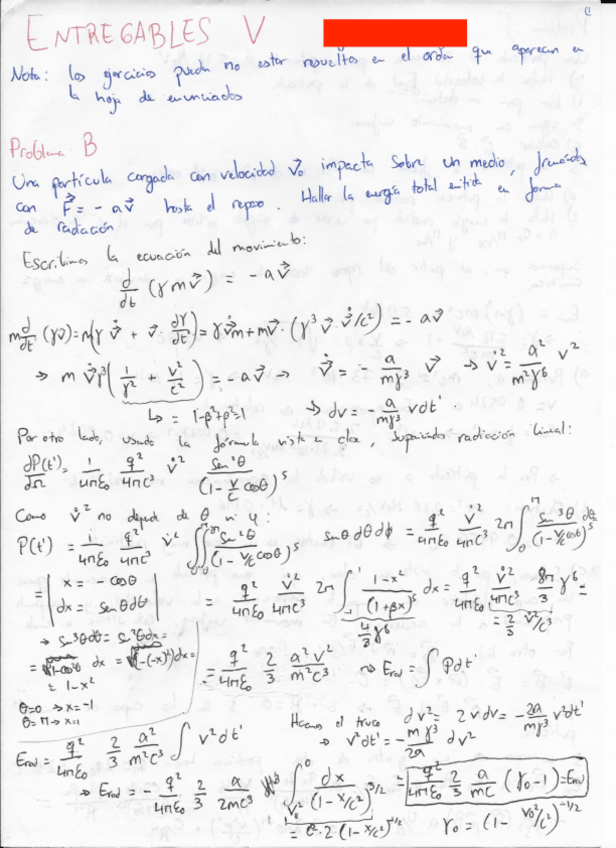 ENTREGABLES V
Nota: los ejercicios pueden no estar resueltos en el orden que aparecen en
la hoja de enunciados
Problema B
Una partícula cargada con velocidad v⃗₀ impacta sobre un medio, frenándose
con F⃗ = - a v⃗ hasta el reposo. Hallar la energía total emitida en forma
de radiación
Escribimos la ecuación del movimiento:
d/dt (γ m v⃗) = - a v⃗
m d/dt (γv⃗) = m(γ v⃗̇ + v⃗ · dγ/dt) = γ v⃗̇ m + m v⃗ · (γ³ v⃗ · v⃗̇/c²) = - a v⃗
→ m v⃗̇ γ³ (1/γ² + v²/c²) = - a v⃗ → v⃗̇ = - a/(mγ³) v⃗ → v̇² = a²/(m²γ⁶) v²
↳ = 1-β²+β² = 1 → dv = - a/(mγ³) v dt'
Por otro lado, usando la fórmula vista en clase, suponiendo radiación lineal:
dP(t')/dΩ = 1/(4πε₀) q²/(4πc³) v̇² sen²θ/(1 - v/c cosθ)⁵
Como v̇² no depende de θ ni φ:
P(t') = 1/(4πε₀) q²/(4πc³) v̇² ∫∫ sen²θ/(1 - v/c cosθ)⁵ senθ dθ dφ = q²/(4πε₀) v̇²/(4πc³) 2π ∫₀^π sen³θ/(1 - v/c cosθ)⁵ dθ
= | x = - cosθ
dx = senθdθ |
= q²/(4πε₀) v̇²/(4πc³) 2π ∫₋₁¹ (1-x²)/(1+βx)⁵ dx = q²/(4πε₀) v̇²/(4πc³) 8π/3 γ⁶ =
4/3 γ⁶
= 2/3 v̇²/c³
→ sen³θdθ = sen²θdx =
= 1-cos²θ dx = (1-(-x)²)dx =
= 1-x²
θ=0 → x=-1
θ=π → x=1
= q²/(4πε₀) 2/3 a²v²/(m²c³) ⇒ Erad = ∫ P dt'
Hacemos el truco dv² = 2v dv = -2a/(mγ³) v² dt'
→ v² dt' = - mγ³/(2a) dv²
Erad = q²/(4πε₀) 2/3 a²/(m²c³) ∫ v² dt'
⇒ Erad = - q²/(4πε₀) 2/3 a/(2mc³) ∫_{v₀²}^0 dx/(1 - x/c²)^{3/2} = q²/(4πε₀) 2/3 a/(mc) (γ₀ - 1) = Erad
= c² · 2 (1 - x/c²)^{-1/2}
γ₀ = (1 - v₀²/c²)^{-1/2}